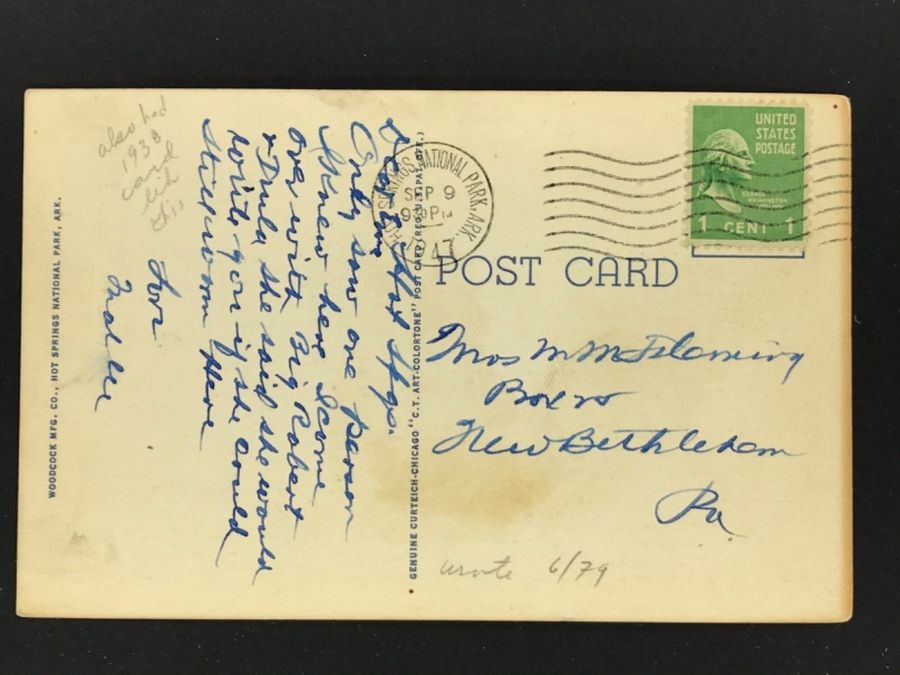 also had
1938
card
like
this
HOT SPRINGS NATIONAL PARK, ARK.
SEP 9
9 PM
1947
UNITED
STATES
POSTAGE
GEORGE
WASHINGTON
1 CENT 1
POST CARD
Hot Spgs.
Only saw one person
I knew here. Came
over with Big Robert
& Drula she said she would
write you if she could
Still warm Here
Love
WOODCOCK MFG. CO., HOT SPRINGS NATIONAL PARK, ARK.
GENUINE CURTEICH-CHICAGO "C.T. ART-COLORTONE" POST CARD (REG. U.S. PAT. OFF.)
Mrs M M Fleming
Box
New Bethlehem
Pa
wrote 6/79